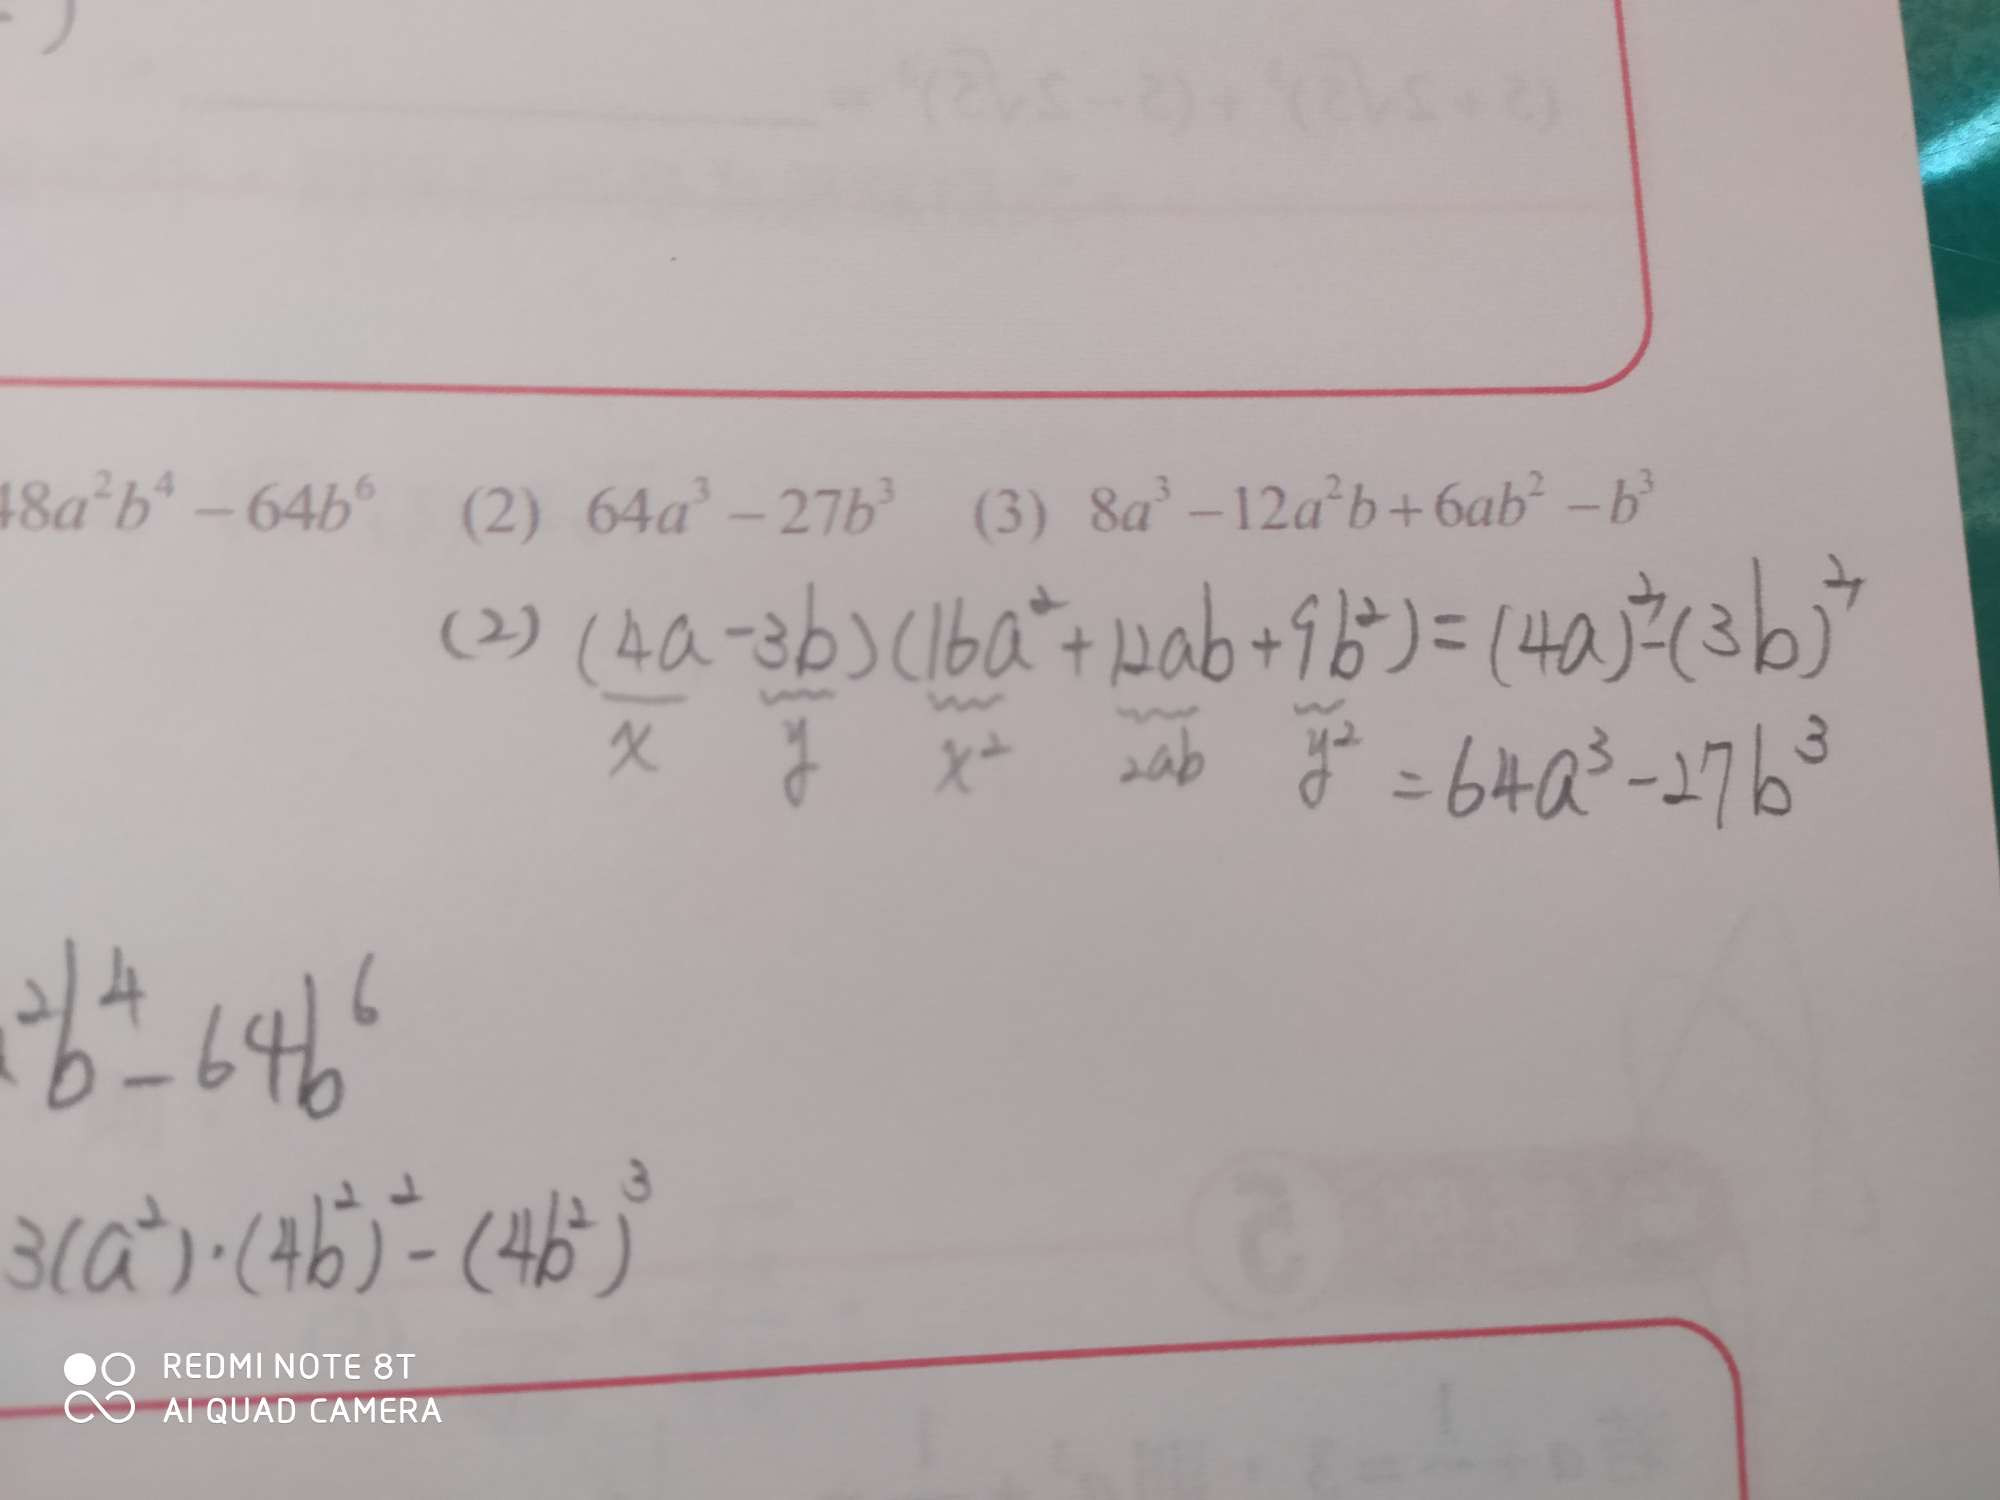 48a²b⁴ − 64b⁶ (2) 64a³ − 27b³ (3) 8a³ − 12a²b + 6ab² − b³
(2) (4a − 3b)(16a² + 12ab + 9b²) = (4a) − (3b)
x y x² 2ab y² = 64a³ − 27b³
²b⁴ − 64b⁶
3(a²)·(4b²)² − (4b²)³
REDMI NOTE 8T
AI QUAD CAMERA